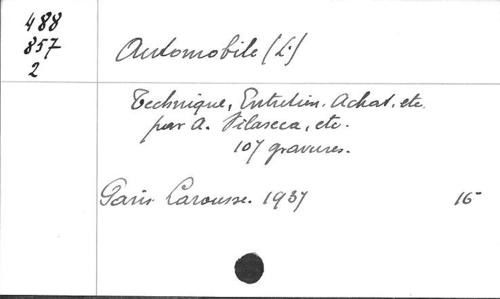 488
857
2
Automobile (L')
Technique, Entretien. Achat, etc.
par A. Vilaseca, etc.
107 gravures.
Paris Larousse. 1937 16-